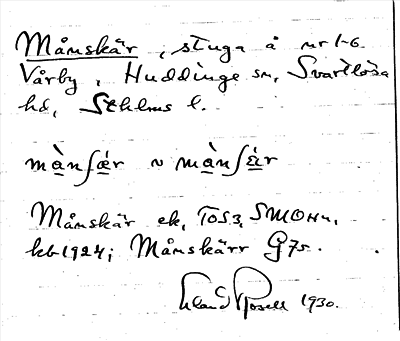 Månskär, stuga å nr 1-6
Vårby, Huddinge sn, Svartlösa
hd, Sthlms l.
mànʃæ̀r ~ mànʃɛ̀r
Månskär ek, TOS3, SMOHn,
kb 1924; Månskärr G75.
1930.